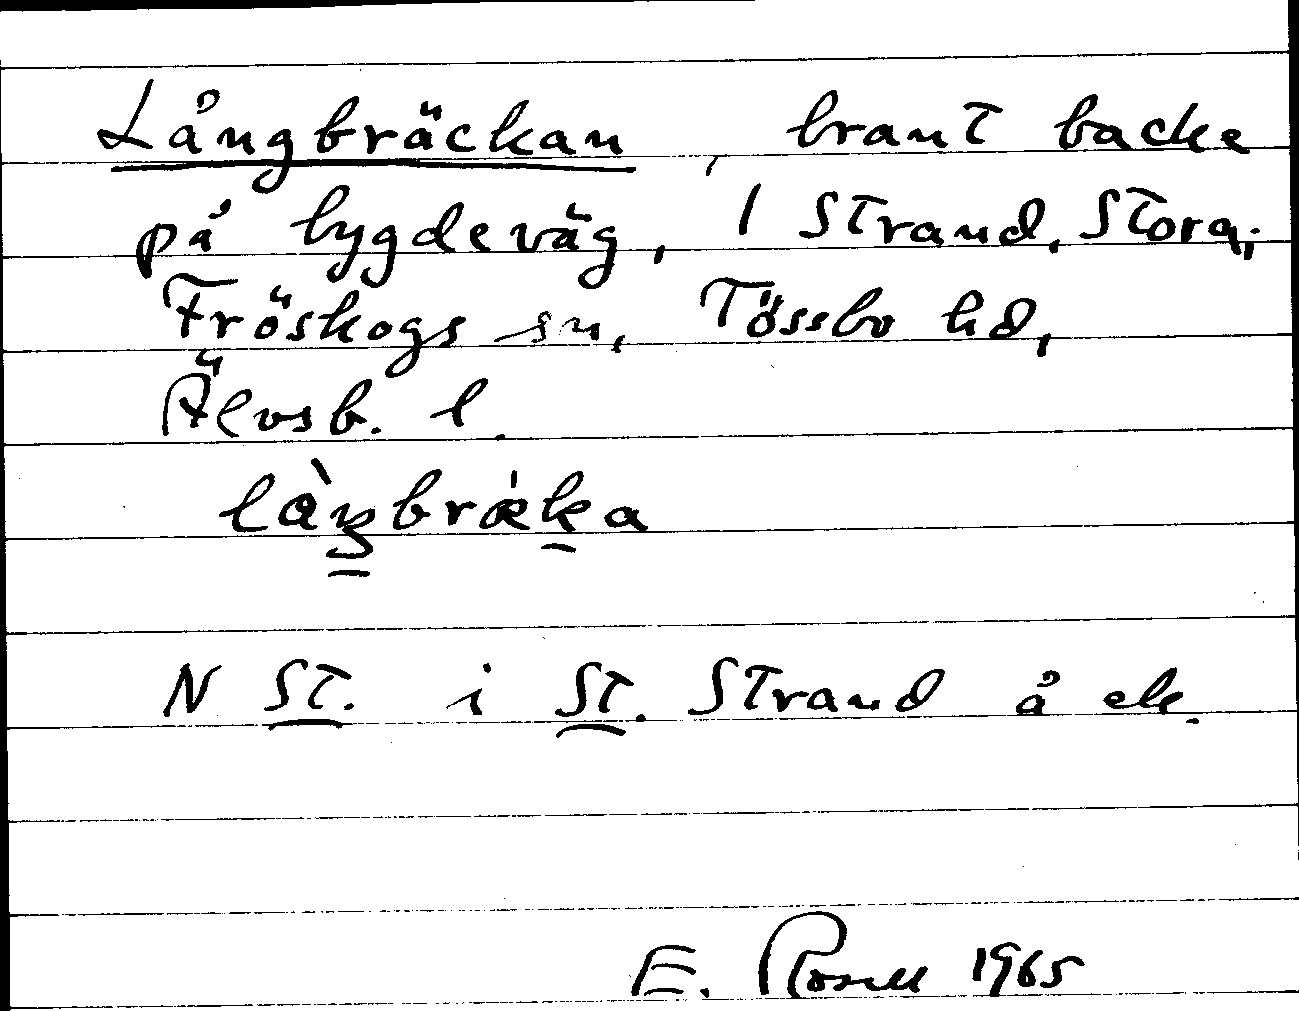 Långbräckan, brant backe
på bygdeväg, 1 Strand, Stora,
Fröskogs sn, Tössbo hd,
Älvsb. l.
N St. i St. Strand å ek.
E. Rosell 1965